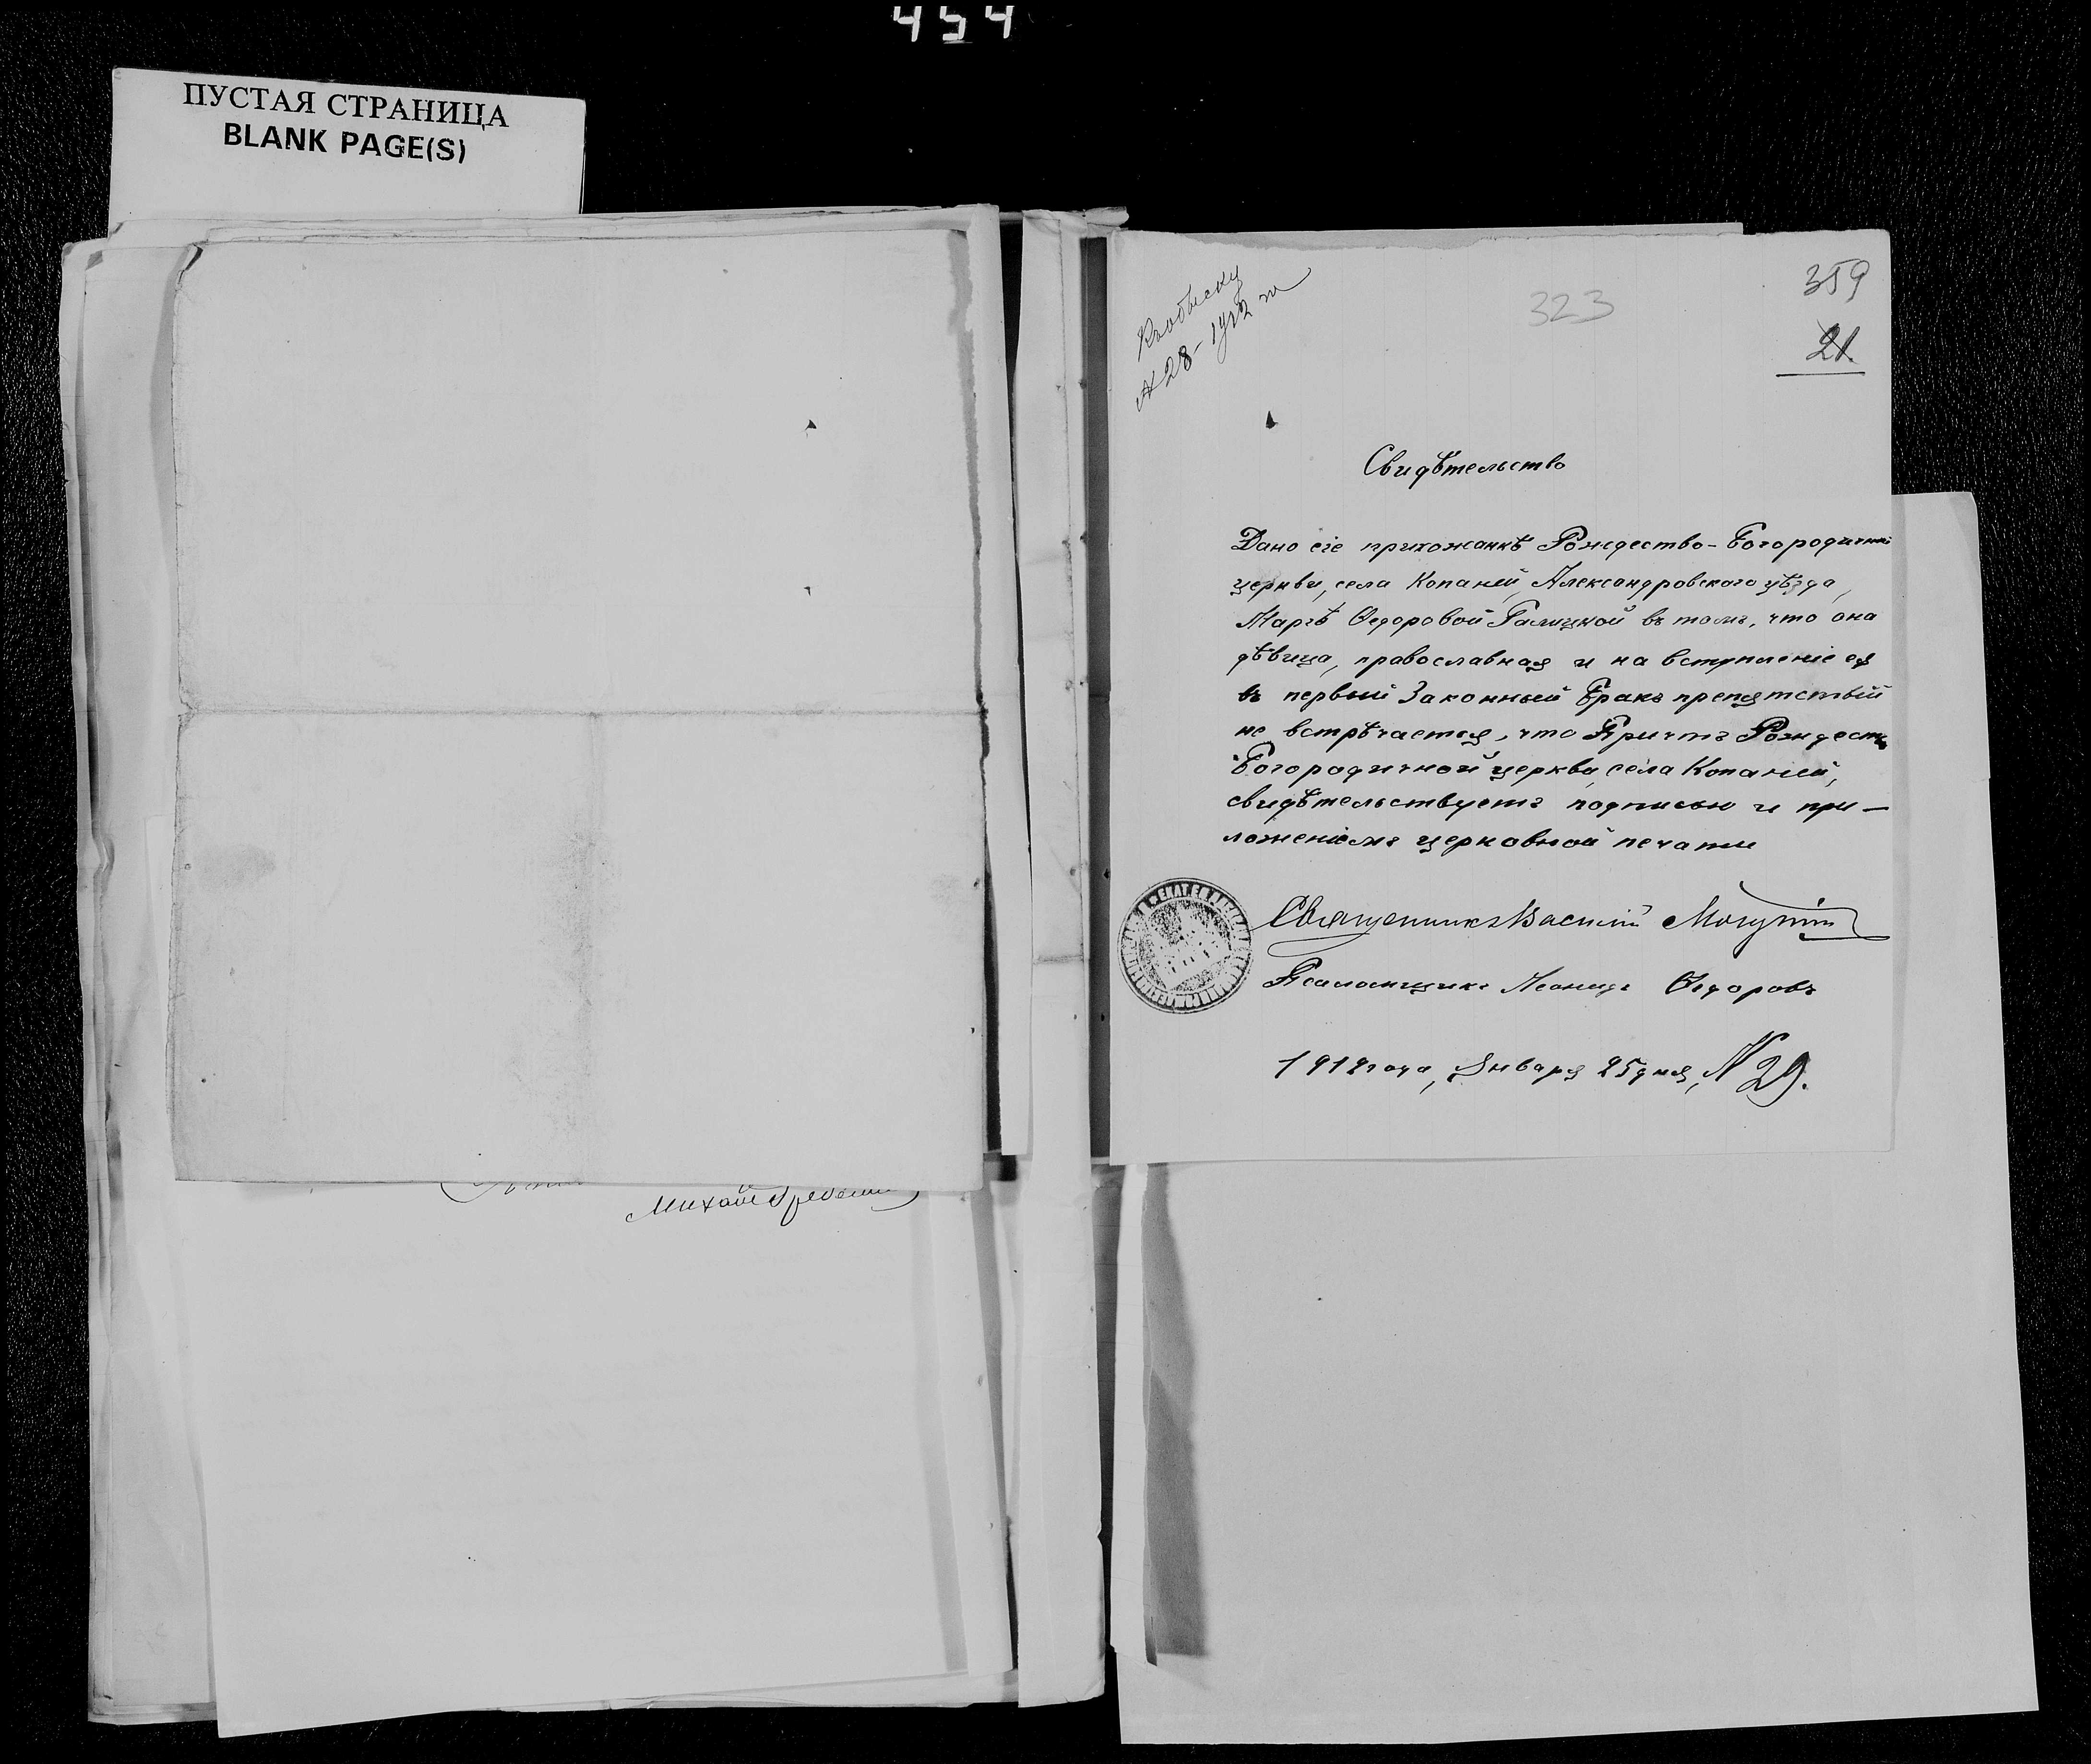 454
ПУСТАЯ СТРАНИЦА
BLANK PAGE(S)
Къ обыску
№ 28 - 1912 г.
323
359
21.
Свидѣтельство
Дано сіе прихожанкѣ Рождество-Богородичной
церкви, села Копаней, Александровского уѣзда,
Марѣѣ Ѳедоровой Галицкой въ томъ, что она
дѣвица, православная и на вступленіе ея
въ первый Законный Бракъ препятствій
не встрѣчается, что Причтъ Рождество
Богородичной церкви села Копаней,
свидѣтельствуетъ подписью и при-
ложеніемъ церковной печати
Священникъ Василій
Псаломщикъ Леонидъ Ѳедоровъ
1912 года, Января 25 дня, № 29.
Михаил